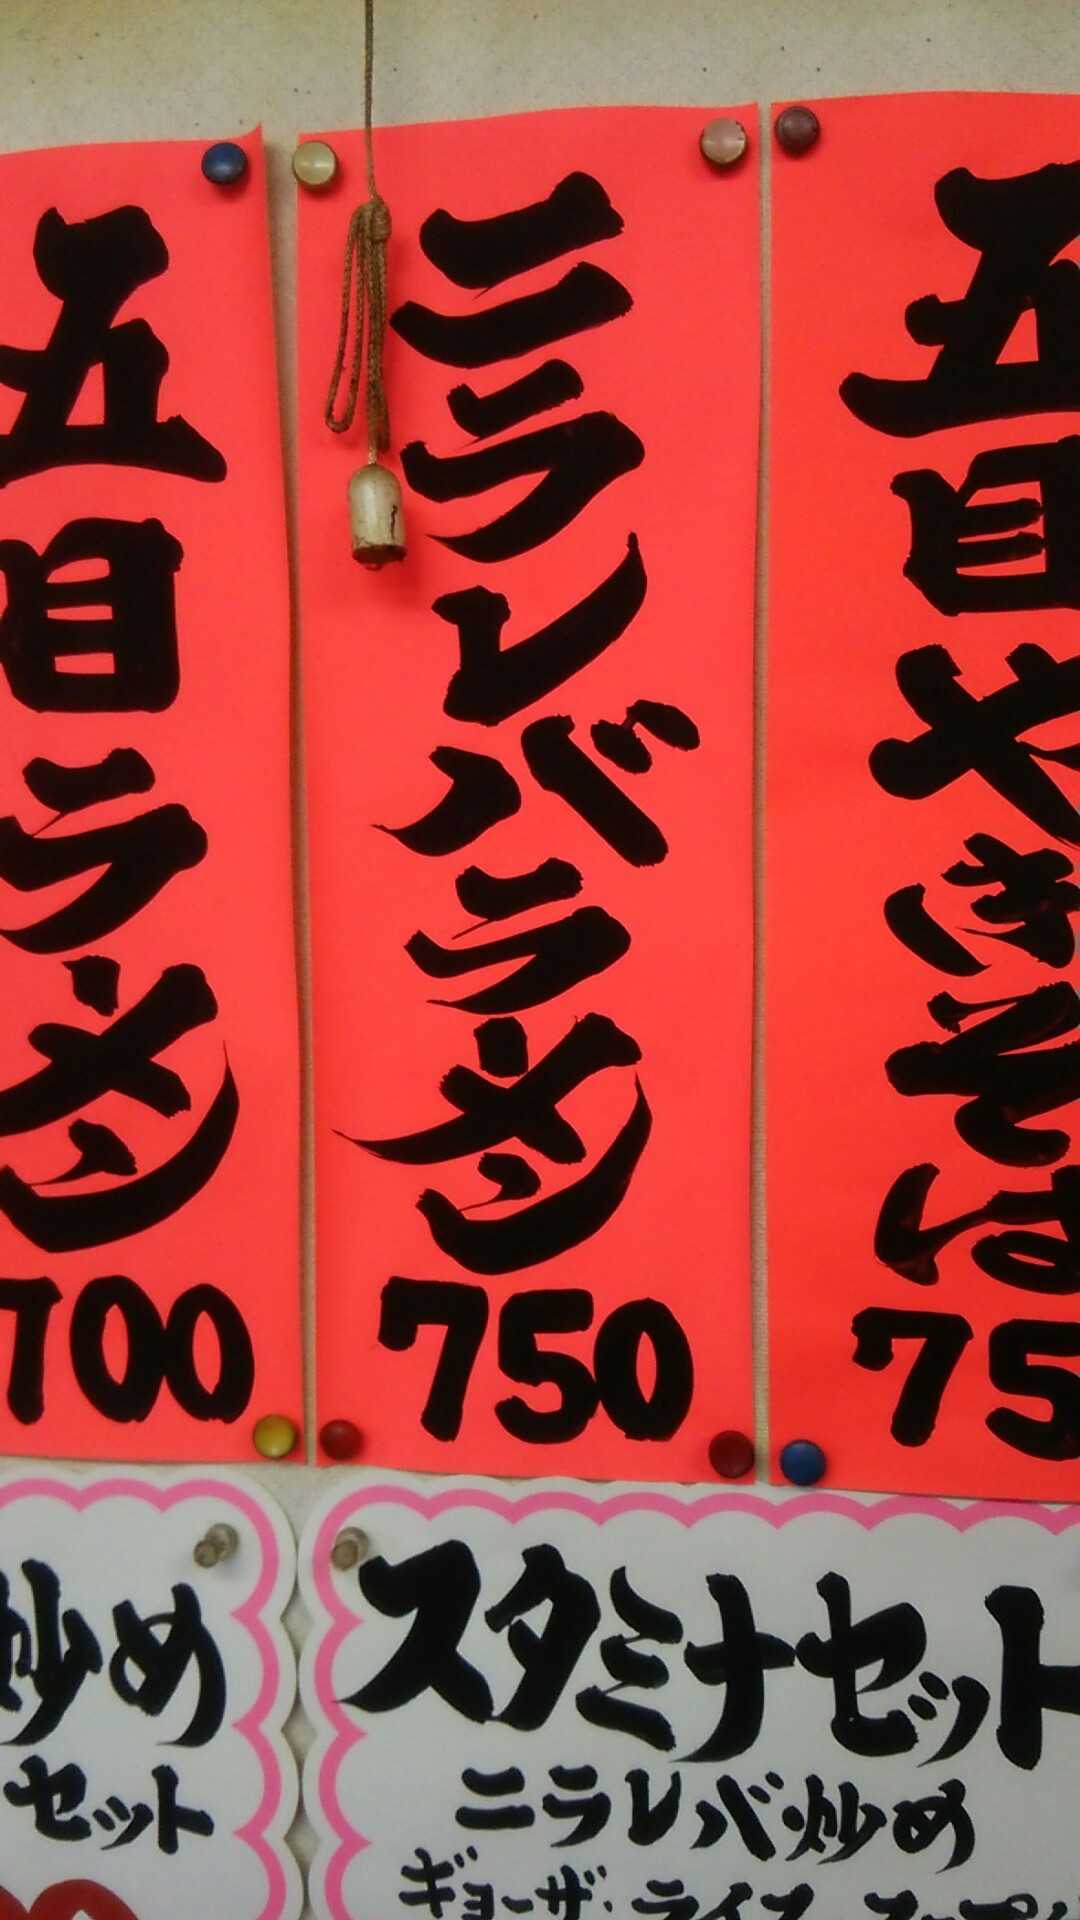 五目ラーメン
700
ニラレバラーメン
750
五目やきそば
75
炒め
セット
スタミナセット
ニラレバ炒め
ギョーザ・ライス